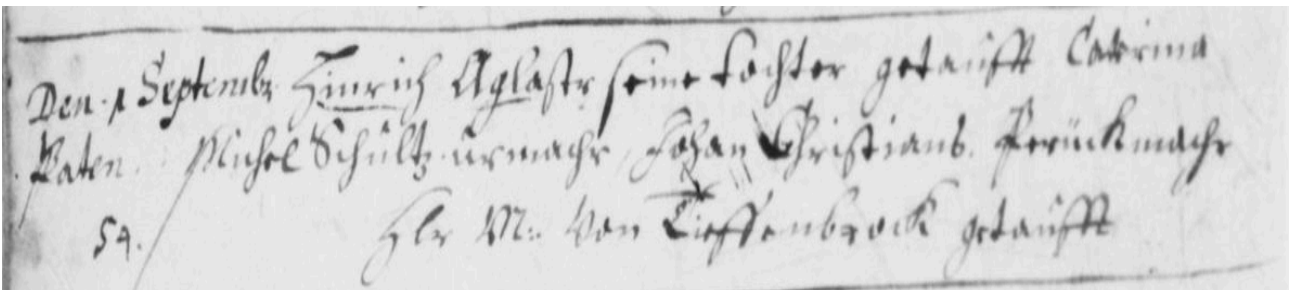 Den 1 Septembr Hinrich Aglastr seine tochter getaufft Catrina
Paten. Michel Schultz urmachr, Johan Christians Perückmachr
54. Hr M: Von Tieffenbrock getaufft